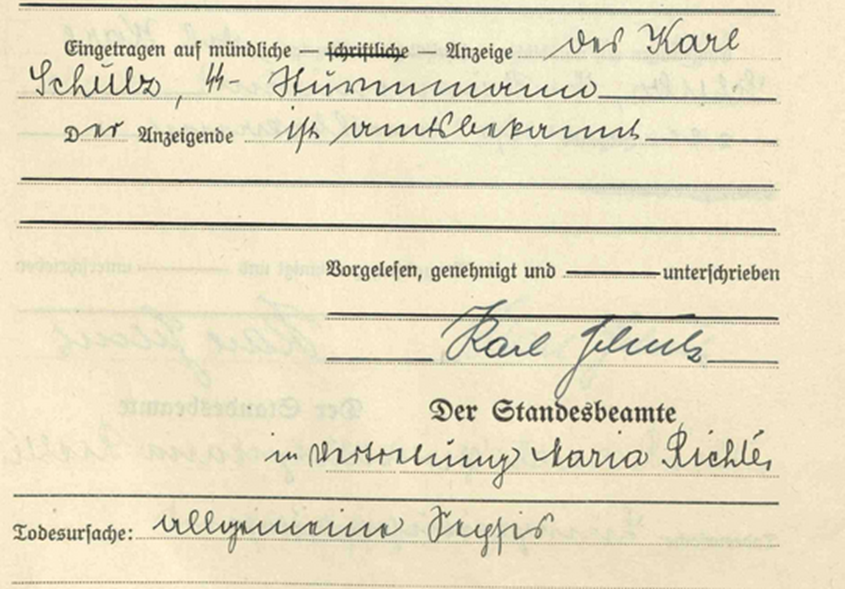 Eingetragen auf mündliche — schriftliche — Anzeige des Karl
Schulz, SS- Sturmmann
Der Anzeigende ist amtsbekannt
Vorgelesen, genehmigt und — unterschrieben
Karl Schulz
Der Standesbeamte
in Vertretung Maria Richter
Todesursache: Allgemeine Sepsis